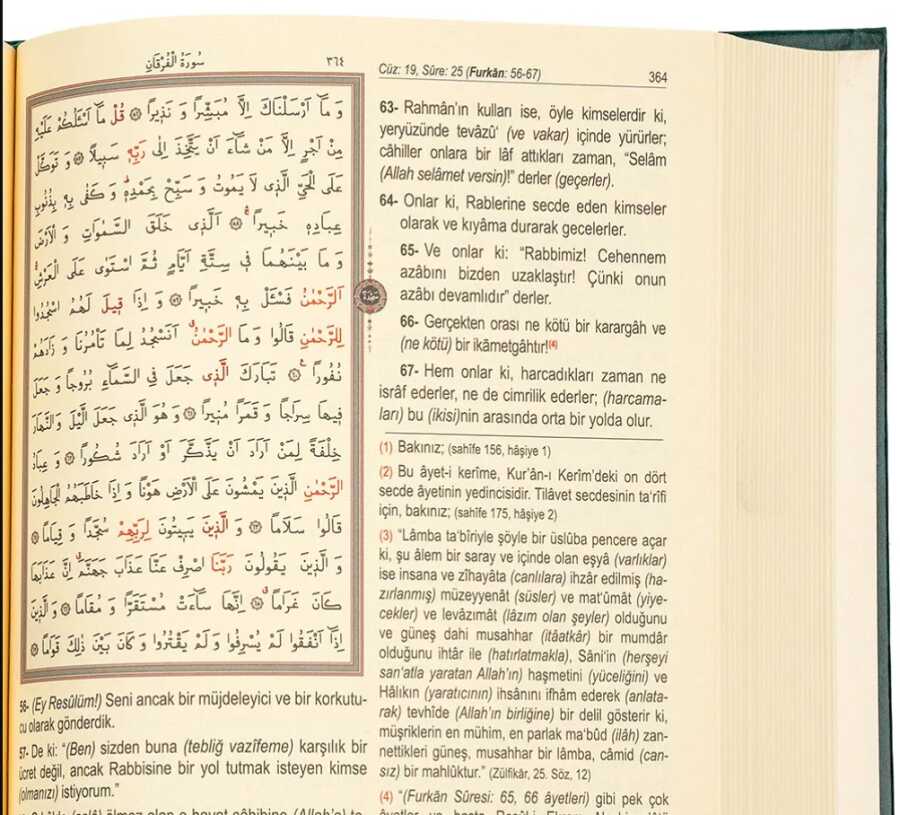 سُورَةُ الْفُرْقَانِ ٣٦٤
وَ مَٓا اَرْسَلْنَاكَ اِلَّا مُبَشِّرًا وَ نَذٖيرًا ۞ قُلْ مَٓا اَسْئَلُكُمْ عَلَيْهِ
مِنْ اَجْرٍ اِلَّا مَنْ شَٓاءَ اَنْ يَتَّخِذَ اِلٰى رَبِّهٖ سَبٖيلًا ۞ وَ تَوَكَّلْ
عَلَى الْحَيِّ الَّذٖى لَا يَمُوتُ وَ سَبِّحْ بِحَمْدِهٖ وَ كَفٰى بِهٖ بِذُنُوبِ
عِبَادِهٖ خَبٖيرًا ۞ اَلَّذٖى خَلَقَ السَّمٰوَاتِ وَ الْاَرْضَ
وَ مَا بَيْنَهُمَا فٖى سِتَّةِ اَيَّامٍ ثُمَّ اسْتَوٰى عَلَى الْعَرْشِ
اَلرَّحْمٰنُ فَسْئَلْ بِهٖ خَبٖيرًا ۞ وَ اِذَا قٖيلَ لَهُمُ اسْجُدُوا
لِلرَّحْمٰنِ قَالُوا وَ مَا الرَّحْمٰنُ اَنَسْجُدُ لِمَا تَاْمُرُنَا وَ زَادَهُمْ
نُفُورًا ۞ تَبَارَكَ الَّذٖى جَعَلَ فِى السَّمَٓاءِ بُرُوجًا وَ جَعَلَ
فٖيهَا سِرَاجًا وَ قَمَرًا مُنٖيرًا ۞ وَ هُوَ الَّذٖى جَعَلَ الَّيْلَ وَ النَّهَارَ
خِلْفَةً لِمَنْ اَرَادَ اَنْ يَذَّكَّرَ اَوْ اَرَادَ شُكُورًا ۞ وَ عِبَادُ
الرَّحْمٰنِ الَّذٖينَ يَمْشُونَ عَلَى الْاَرْضِ هَوْنًا وَ اِذَا خَاطَبَهُمُ الْجَاهِلُونَ
قَالُوا سَلَامًا ۞ وَ الَّذٖينَ يَبٖيتُونَ لِرَبِّهِمْ سُجَّدًا وَ قِيَامًا ۞
وَ الَّذٖينَ يَقُولُونَ رَبَّنَا اصْرِفْ عَنَّا عَذَابَ جَهَنَّمَ اِنَّ عَذَابَهَا
كَانَ غَرَامًا ۞ اِنَّهَا سَٓاءَتْ مُسْتَقَرًّا وَ مُقَامًا ۞ وَ الَّذٖينَ
اِذَٓا اَنْفَقُوا لَمْ يُسْرِفُوا وَ لَمْ يَقْتُرُوا وَ كَانَ بَيْنَ ذٰلِكَ قَوَامًا ۞
56- (Ey Resûlüm!) Seni ancak bir müjdeleyici ve bir korkutu-
cu olarak gönderdik.
57- De ki: “(Ben) sizden buna (tebliğ vazîfeme) karşılık bir
ücret değil, ancak Rabbisine bir yol tutmak isteyen kimse
(olmanızı) istiyorum.”
Cüz: 19, Sûre: 25 (Furkān: 56-67) 364
63- Rahmân’ın kulları ise, öyle kimselerdir ki,
yeryüzünde tevâzû‘ (ve vakar) içinde yürürler;
câhiller onlara bir lâf attıkları zaman, “Selâm
(Allah selâmet versin)!” derler (geçerler).
64- Onlar ki, Rablerine secde eden kimseler
olarak ve kıyâma durarak gecelerler.
65- Ve onlar ki: “Rabbimiz! Cehennem
azâbını bizden uzaklaştır! Çünki onun
azâbı devamlıdır” derler.
66- Gerçekten orası ne kötü bir karargâh ve
(ne kötü) bir ikâmetgâhtır!(4)
67- Hem onlar ki, harcadıkları zaman ne
isrâf ederler, ne de cimrilik ederler; (harcama-
ları) bu (ikisi)nin arasında orta bir yolda olur.
(1) Bakınız; (sahîfe 156, hâşiye 1)
(2) Bu âyet-i kerîme, Kur’ân-ı Kerîm’deki on dört
secde âyetinin yedincisidir. Tilâvet secdesinin ta‘rîfi
için, bakınız; (sahîfe 175, hâşiye 2)
(3) “Lâmba ta‘bîriyle şöyle bir üslûba pencere açar
ki, şu âlem bir saray ve içinde olan eşyâ (varlıklar)
ise insana ve zîhayâta (canlılara) ihzâr edilmiş (ha-
zırlanmış) müzeyyenât (süsler) ve mat‘ûmât (yiye-
cekler) ve levâzımât (lâzım olan şeyler) olduğunu
ve güneş dahi musahhar (itâatkâr) bir mumdâr
olduğunu ihtâr ile (hatırlatmakla), Sâni‘in (herşeyi
san‘atla yaratan Allah’ın) haşmetini (yüceliğini) ve
Hâlıkın (yaratıcının) ihsânını ifhâm ederek (anlata-
rak) tevhîde (Allah’ın birliğine) bir delil gösterir ki,
müşriklerin en mühim, en parlak ma‘bûd (ilâh) zan-
nettikleri güneş, musahhar bir lâmba, câmid (can-
sız) bir mahlûktur.” (Zülfikār, 25. Söz, 12)
(4) “(Furkān Sûresi: 65, 66 âyetleri) gibi pek çok